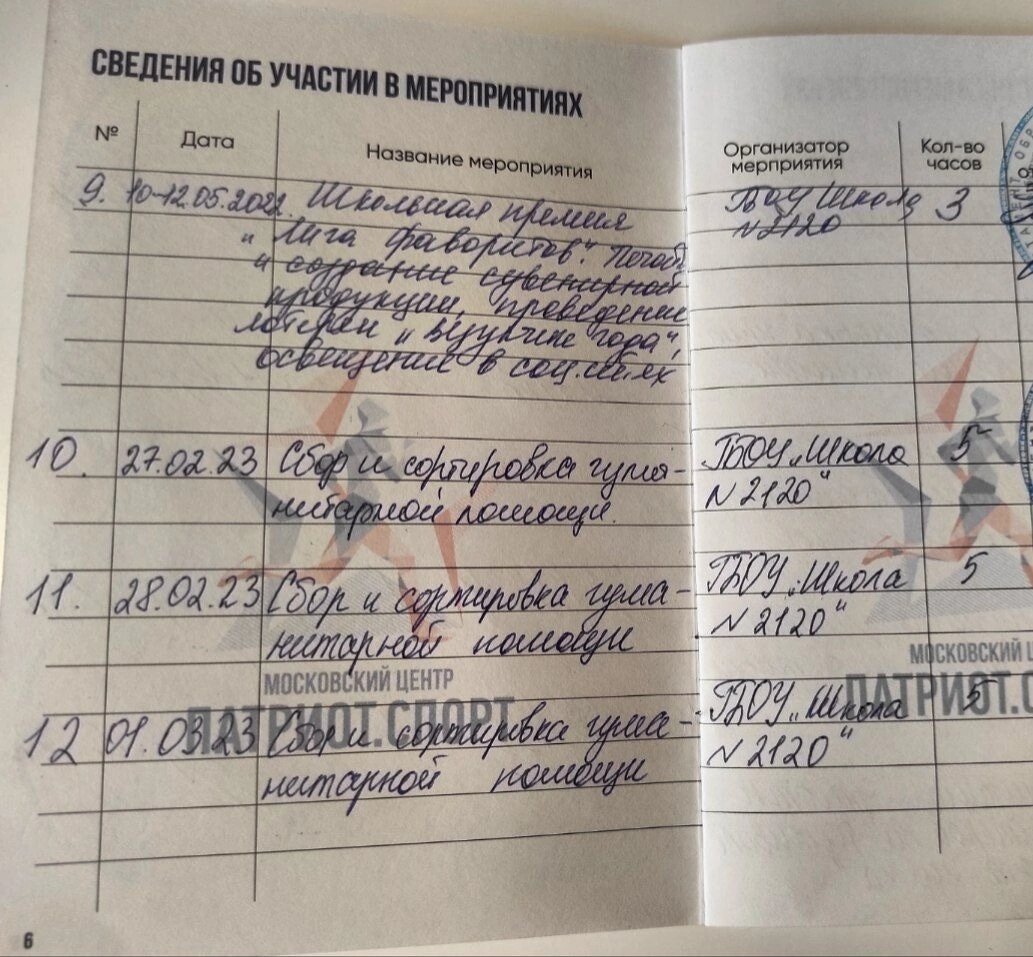 СВЕДЕНИЯ ОБ УЧАСТИИ В МЕРОПРИЯТИЯХ
№ Дата Название мероприятия Организатор мерприятия Кол-во часов
9. 10-12.05.2022. Школьная премия ГБОУ Школа 3
"Лига фаворитов". №2120
и создание сувенирной
продукции, проведение
лотереи и
освещение в соц.сетях
10. 27.02.23 Сбор и сортировка гума- ГБОУ „Школа 5
нитарной помощи. №2120"
11. 28.02.23 Сбор и сортировка гума- ГБОУ „Школа 5
нитарной помощи №2120"
МОСКОВСКИЙ ЦЕНТР МОСКОВСКИЙ
ПАТРИОТ.СПОРТ ПАТРИОТ.С
12 01.03.23 Сбор и сортировка гума- ГБОУ „Школа 5
нитарной помощи №2120"
6